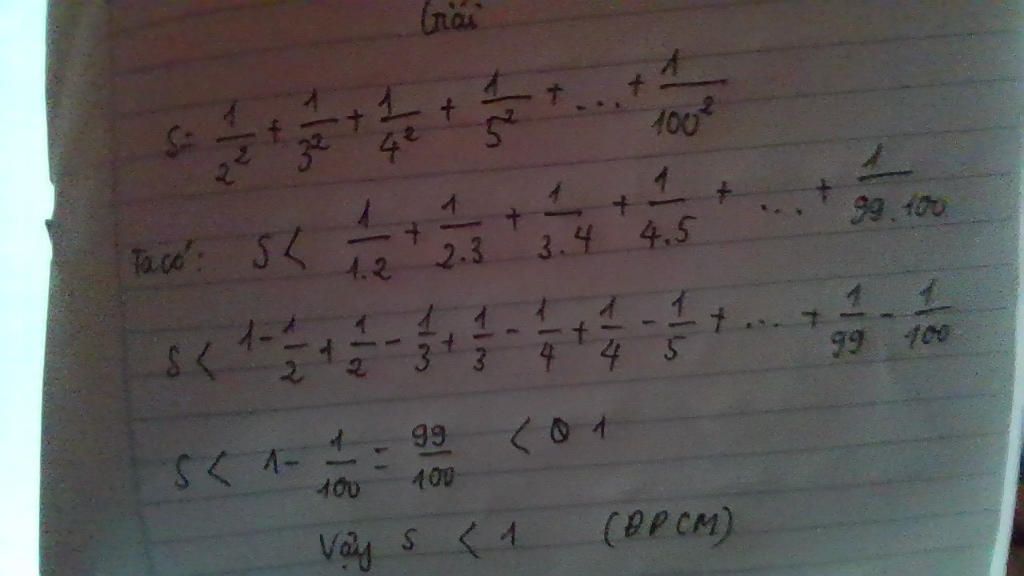 Giải
S = 1/2² + 1/3² + 1/4² + 1/5² + ... + 1/100²
Ta có: S < 1/1.2 + 1/2.3 + 1/3.4 + 1/4.5 + ... + 1/99.100
S < 1 - 1/2 + 1/2 - 1/3 + 1/3 - 1/4 + 1/4 - 1/5 + ... + 1/99 - 1/100
S < 1 - 1/100 = 99/100 < 1
Vậy S < 1 (ĐPCM)